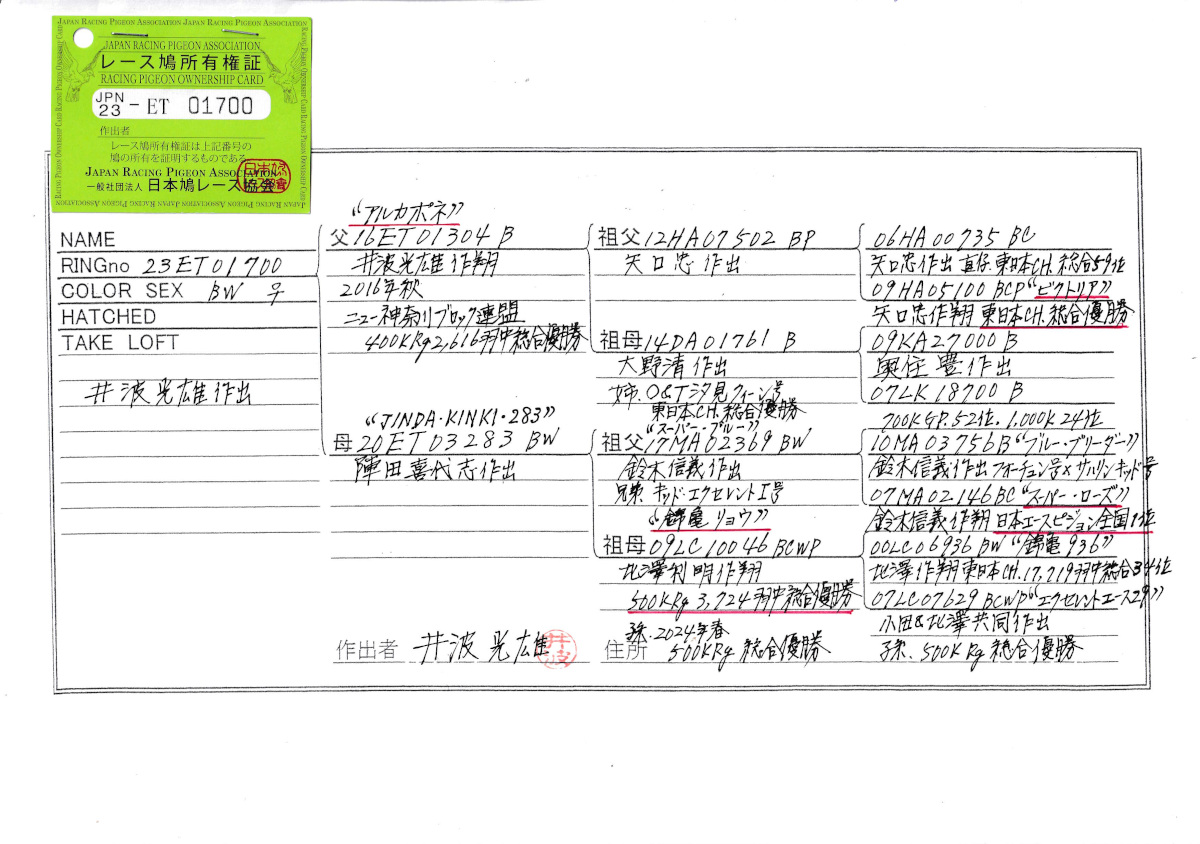 JAPAN RACING PIGEON ASSOCIATION JAPAN RACING PIGEON ASSOCIATION
JAPAN RACING PIGEON ASSOCIATION
レース鳩所有権証
RACING PIGEON OWNERSHIP CARD
JPN
23 - ET 01700
作出者
レース鳩所有権証は上記番号の
鳩の所有を証明するものである。
JAPAN RACING PIGEON ASSOCIATION
一般社団法人 日本鳩レース協会
NAME
RINGno 23ET01700
COLOR SEX BW ♀
HATCHED
TAKE LOFT
井波光雄作出
"アルカポネ"
父16ET01304 B
井波光雄作翔
2016年秋
ニュー神奈川ブロック連盟
400KRg2,616羽中総合優勝
"JINDA・KINKI・283"
母20ET03283 BW
陣田喜代志作出
祖父12HA07502 BP
矢口忠作出
祖母14DA01761 B
大野清作出
姉.O&T汐見クィーン号
東日本CH.総合優勝
"スーパー・ブルー"
祖父17MA02369 BW
鈴木信義作出
兄弟.キッド・エクセレントI号
"錦亀リョウ"
祖母09LC10046 BCWP
北澤利明作翔
500KRg 3,724羽中総合優勝
孫.2024年春
500KRg 総合優勝
06HA00735 BC
矢口忠作出 直仔.東日本CH.総合59位
09HA05100 BCP"ビクトリア"
矢口忠作翔 東日本CH.総合優勝
09KA27000 B
奥住豊作出
07LK18700 B
700KGP.52位.1,000K24位
10MA03756B"ブルー・ブリーダー"
鈴木信義作出フォーチュン号×サルリンキッド号
07MA02146BC"スーパー・ローズ"
鈴木信義作翔 日本エースピジョン全国1位
00LC06936 BW "錦亀936"
北澤作翔東日本CH.17,719羽中総合34位
07LC07629 BCWP"エクセレントエース29"
小田&北澤共同作出
孫.500KRg 総合優勝
作出者 井波光雄 井波
住所